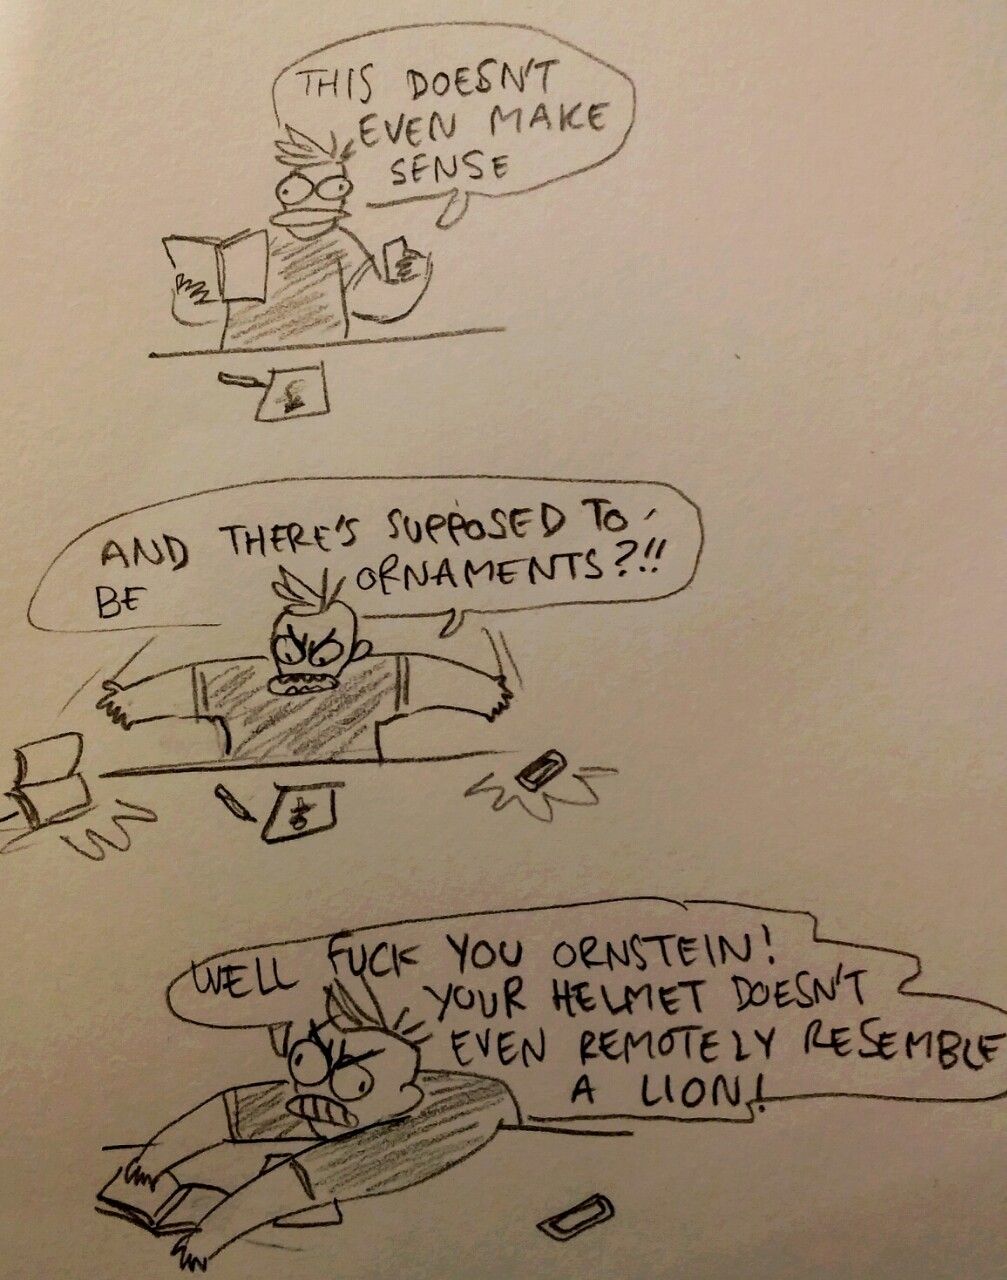 THIS DOESN'T
EVEN MAKE
SENSE
AND THERE'S SUPPOSED TO
BE ORNAMENTS?!!
WELL FUCK YOU ORNSTEIN!
YOUR HELMET DOESN'T
EVEN REMOTELY RESEMBLE
A LION!